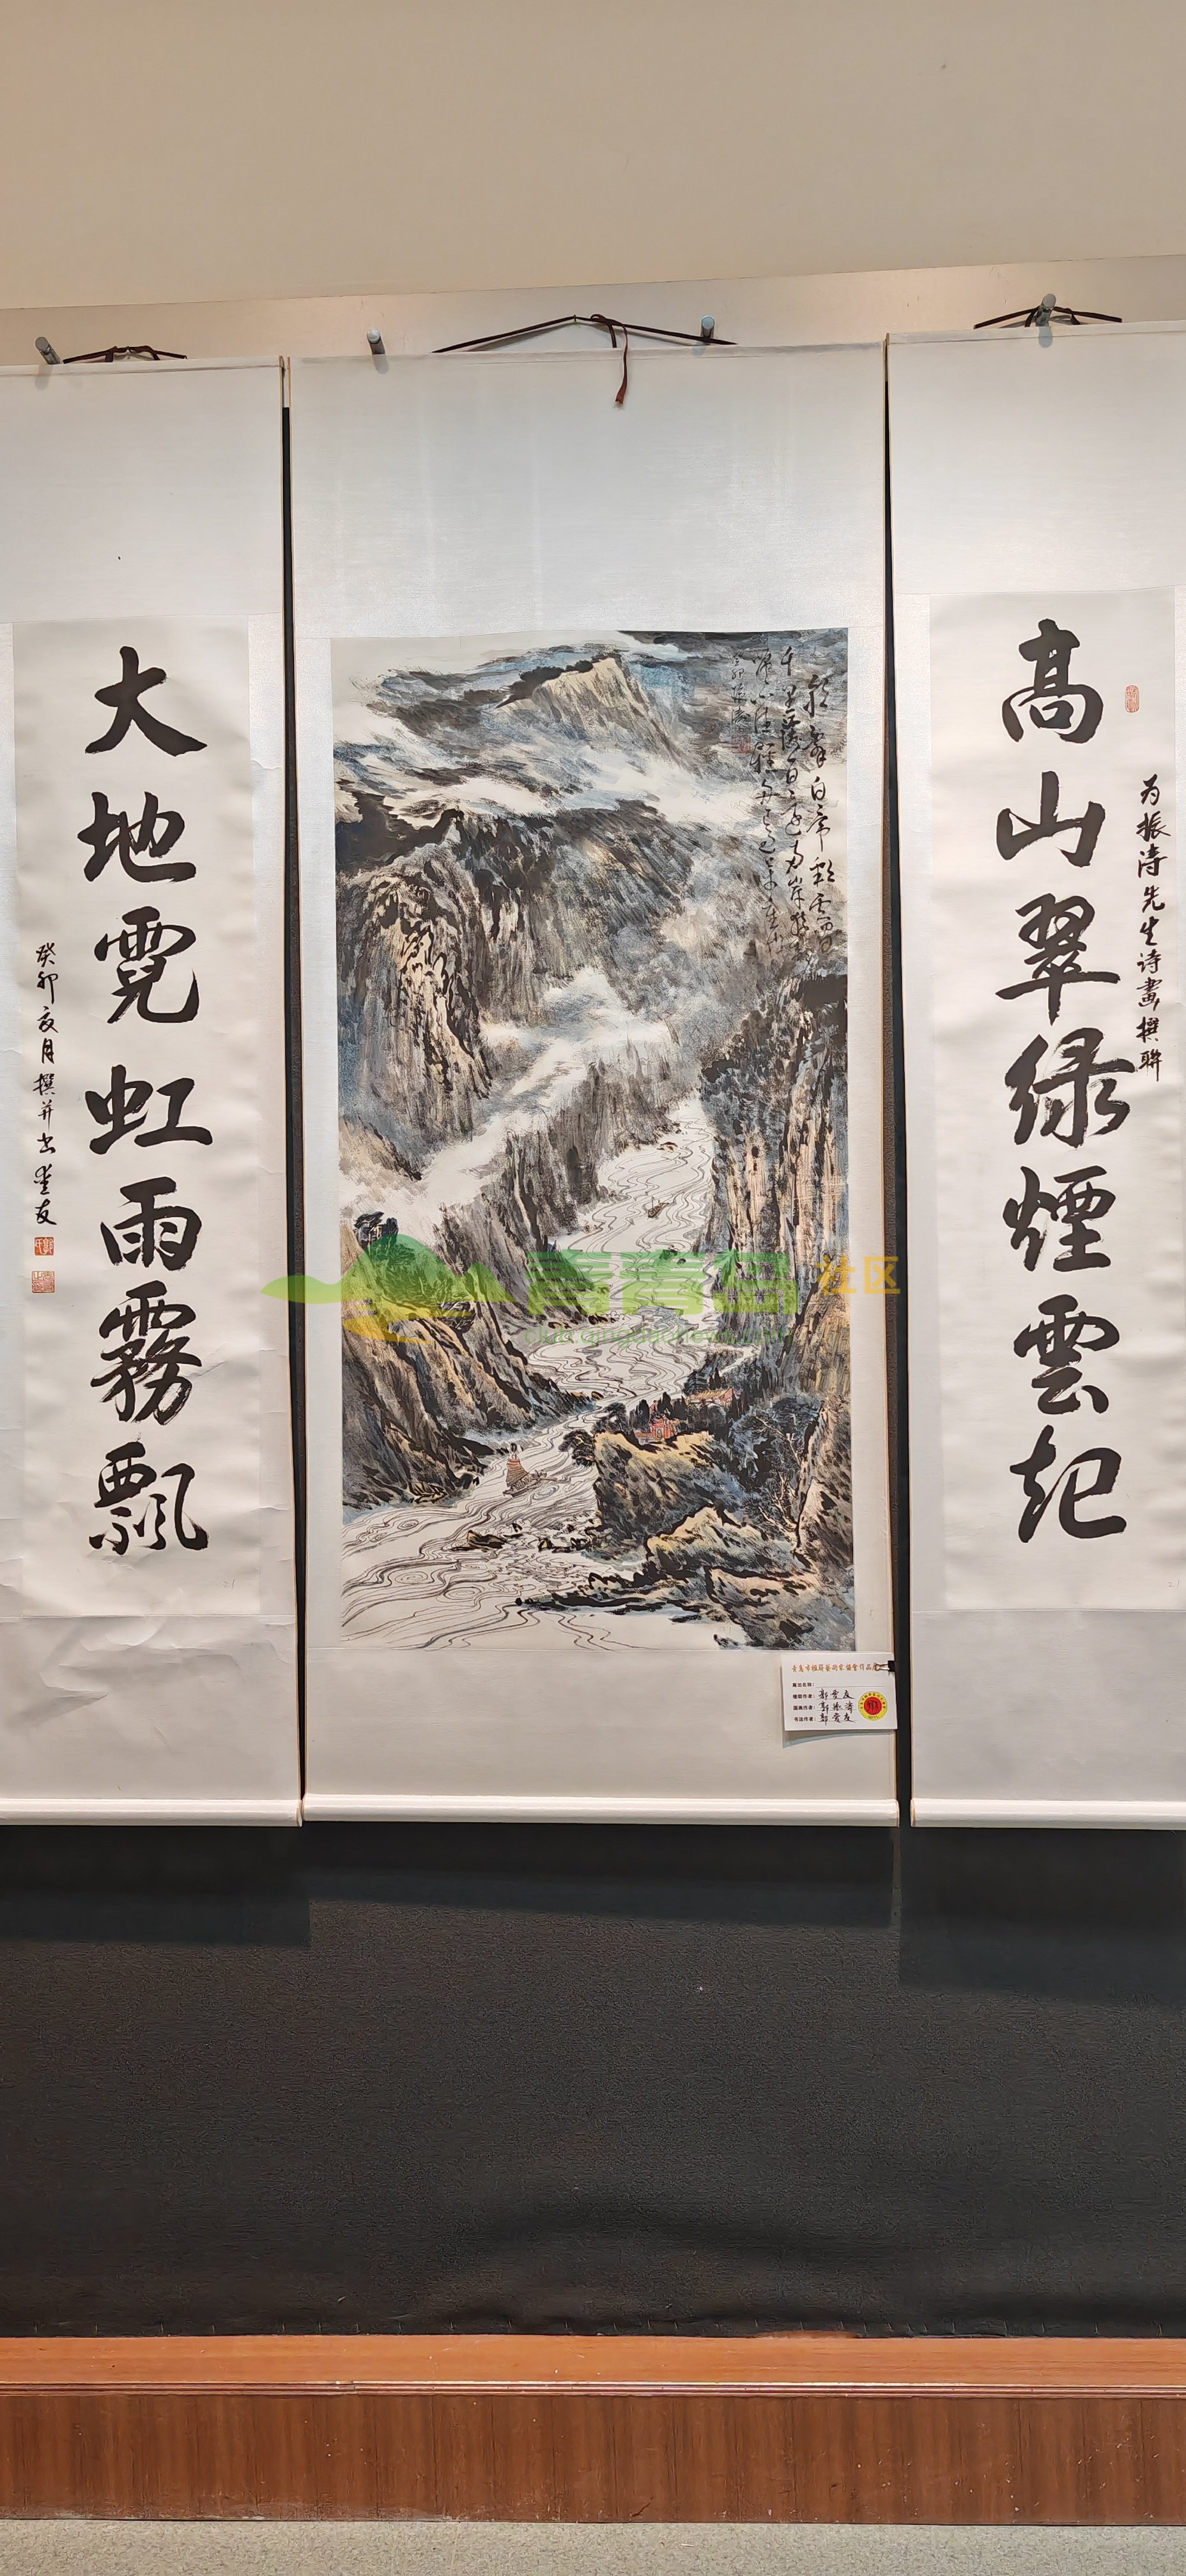 高山翠绿煙雲起
为振涛先生诗畫撰聯
朝辞白帝彩雲间
千里江陵一日还两岸猿
声啼不住轻舟已过万重山
大地霓虹雨霧飄
癸卯夏月撰并书爱友
青島市楹聯藝術家協會作品展
展出名称：
楹联作者：郭爱友
国画作者：郭振涛
书法作者：郭爱友
青青岛社区
club.qingdaonews.com